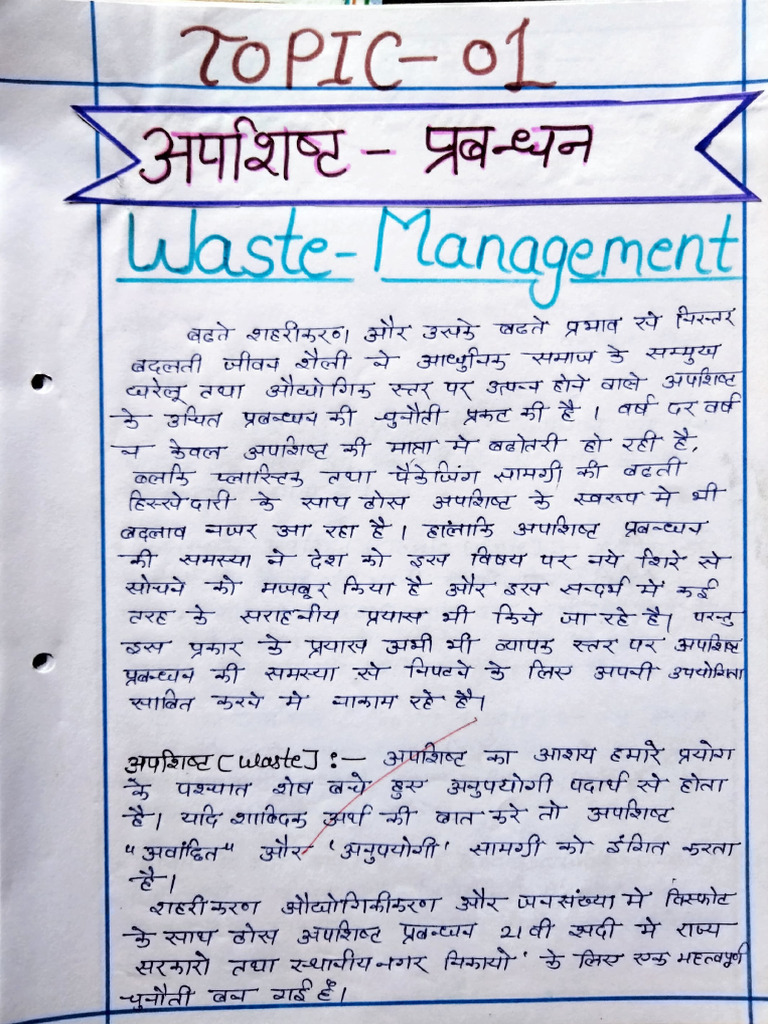 TOPIC-01
अपशिष्ट - प्रबन्धन
Waste-Management
बढते शहरीकरण और उसके बढते प्रभाव से निरन्तर
बदलती जीवन शैली ने आधुनिक समाज के सम्मुख
घरेलू तथा औद्योगिक स्तर पर उत्पन्न होने वाले अपशिष्ट
के उचित प्रबन्धन की चुनौती प्रकट की है । वर्ष दर वर्ष
न केवल अपशिष्ट की मात्रा मे बढोतरी हो रही है,
बलकि प्लास्टिक तथा पैकेजिंग सामगी की बढती
हिस्सेदारी के साथ ठोस अपशिष्ट के स्वरूप मे भी
बदलाव नजर आ रहा है । हालांकि अपशिष्ट प्रबन्धन
की समस्या ने देश को इस विषय पर नये शिरे से
सोचने को मजबूर किया है और इस सन्दर्भ में कई
तरह के सराहनीय प्रयास भी किये जा रहे है। परन्तु
इस प्रकार के प्रयास अभी भी व्यापक स्तर पर अपशिष्ट
प्रबन्धन की समस्या से निपटने के लिए अपनी उपयोगिता
साबित करने मे नाकाम रहे है।
अपशिष्ट [Waste] :- अपशिष्ट का आशय हमारे प्रयोग
के पश्चात शेष बचे हुए अनुपयोगी पदार्थ से होता
है। यदि शाब्दिक अर्थ की बात करे तो अपशिष्ट
"अवांछित" और 'अनुपयोगी' सामगी को इंगित करता
है।
शहरीकरण औद्योगिकीकरण और जनसंख्या मे विस्फोट
के साथ ठोस अपशिष्ट प्रबन्धन 21 वी सदी मे राज्य
सरकारो तथा स्थानीय नगर निकायो के लिए एक महत्वपूर्ण
चुनौती बन गई है।